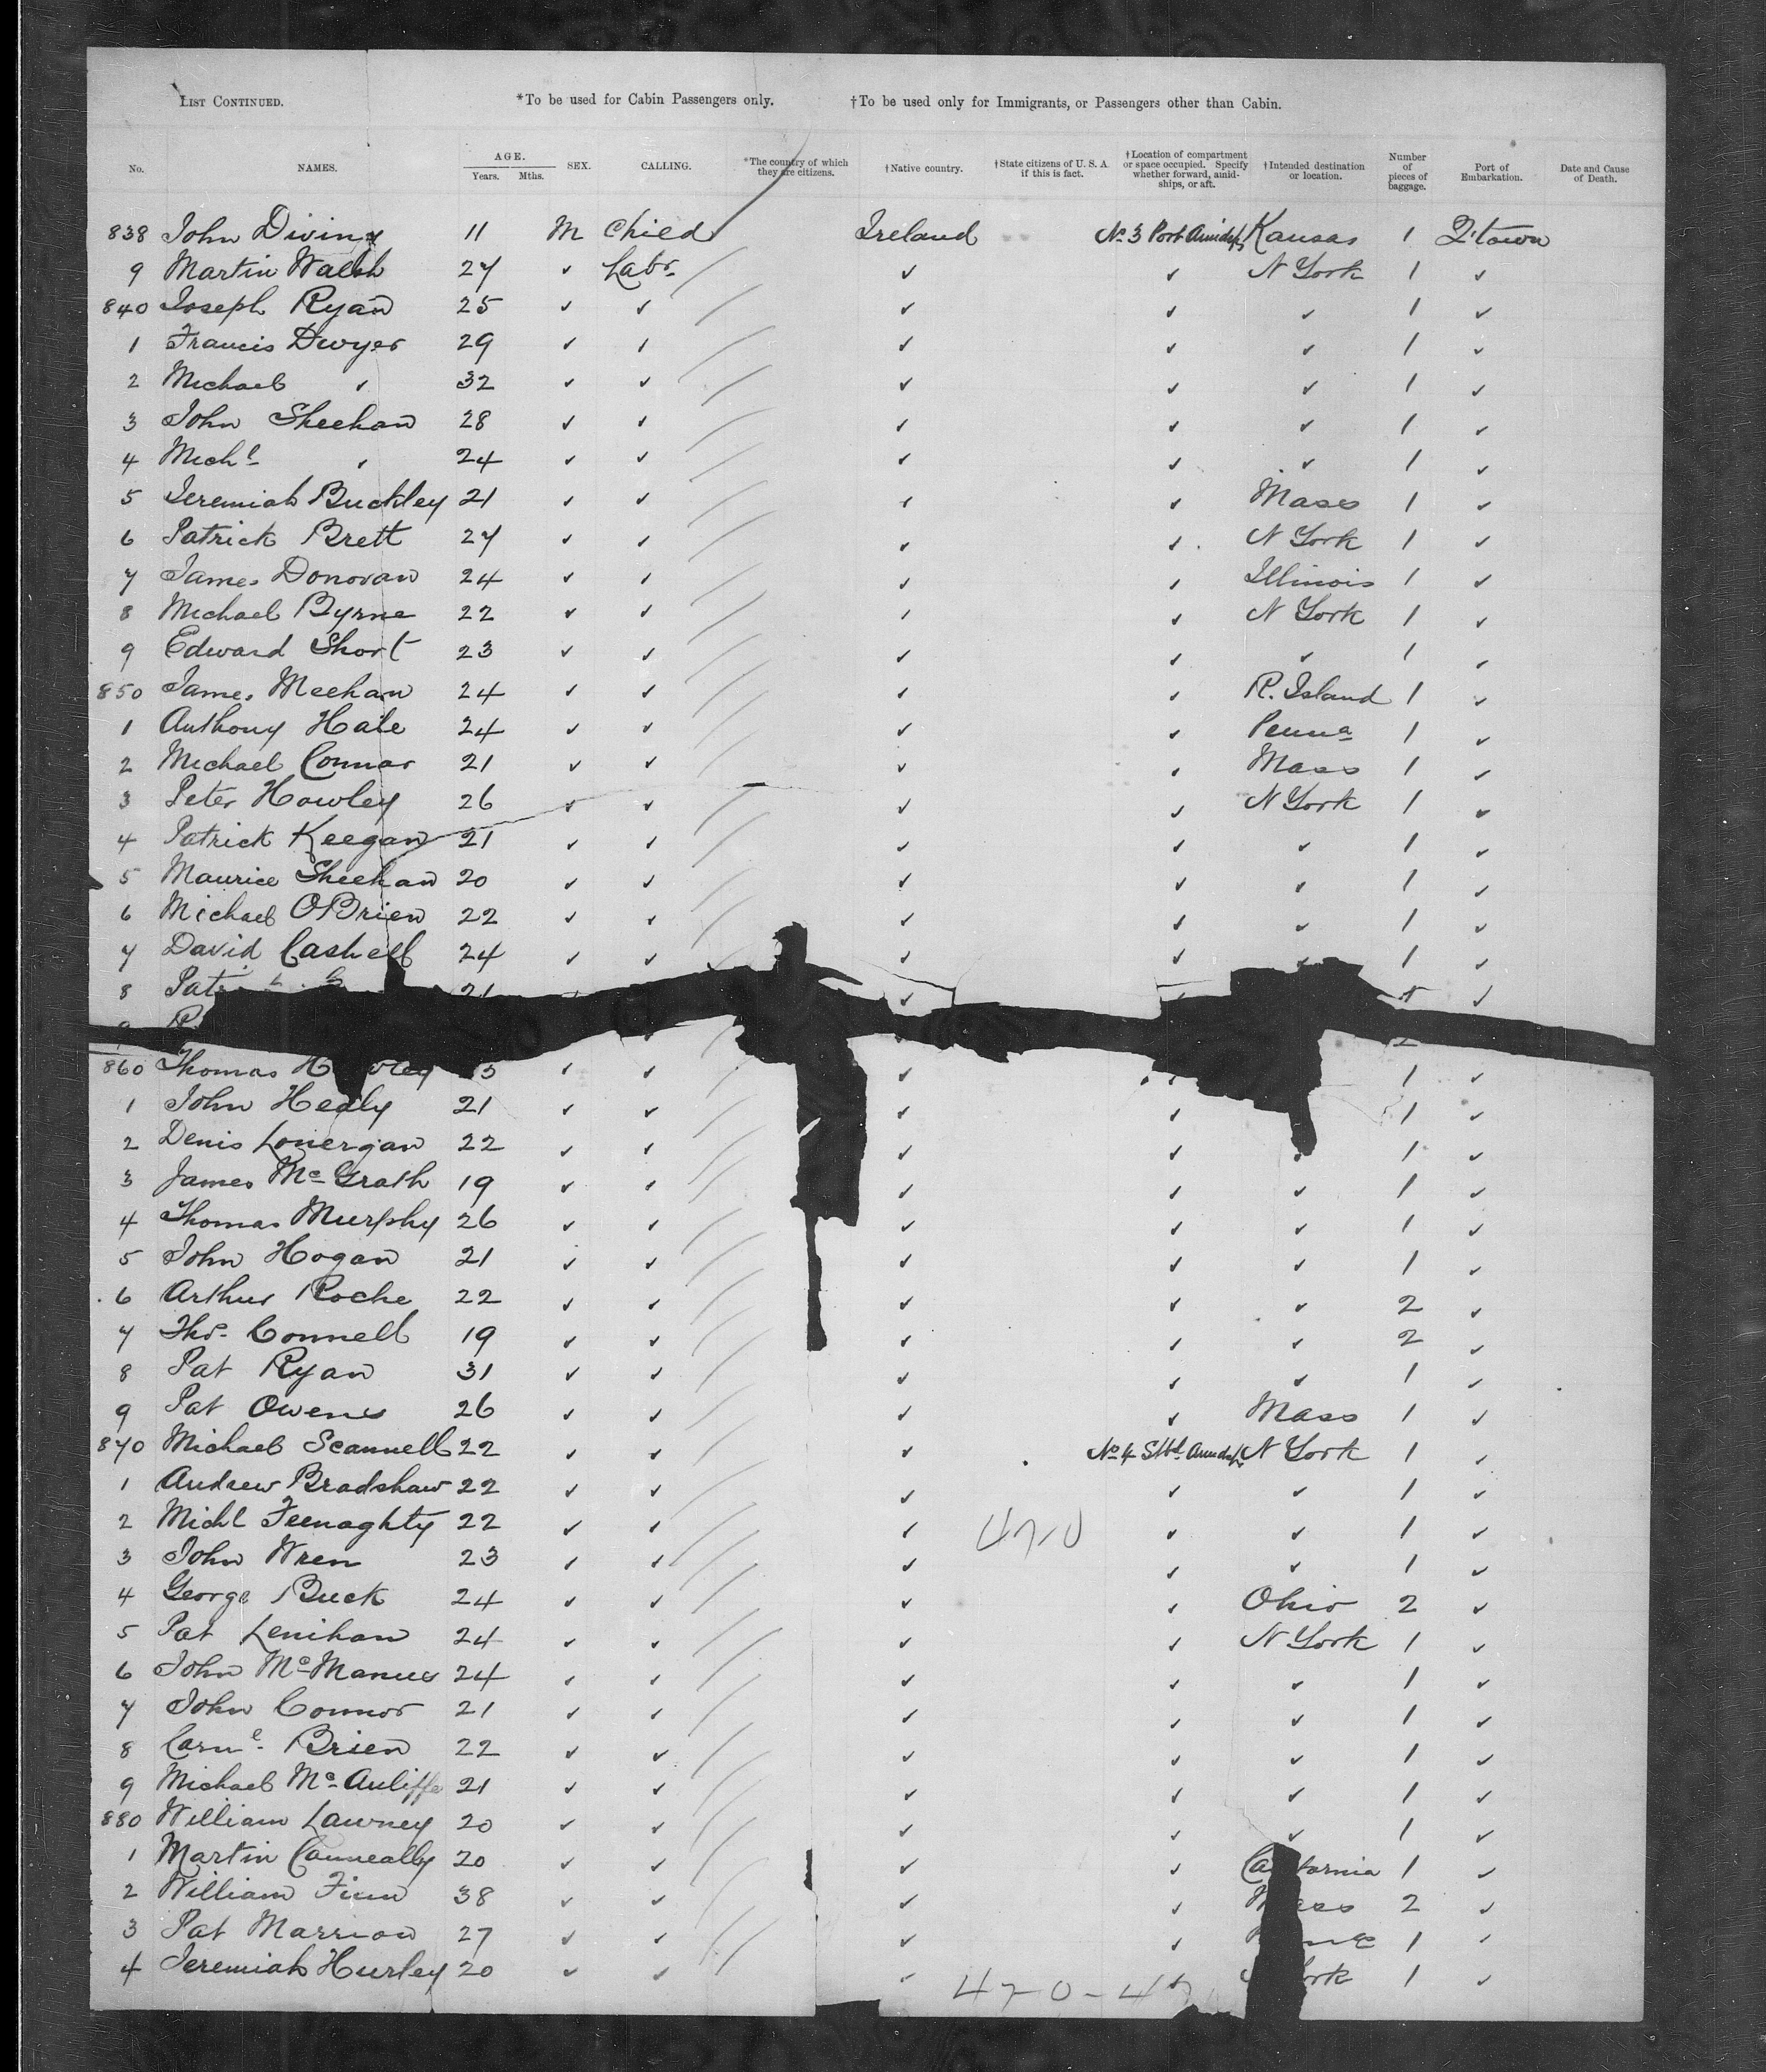 LIST CONTINUED. *To be used for Cabin Passengers only. †To be used only for Immigrants, or Passengers other than Cabin.
No. NAMES. AGE. Years. Mths. SEX. CALLING. *The country of which they are citizens. †Native country. †State citizens of U. S. A. if this is fact. †Location of compartment or space occupied. Specify whether forward, amidships, or aft. †Intended destination or location. Number of pieces of baggage. Port of Embarkation. Date and Cause of Death.
838 John Diviny 11 M Child Ireland No 3 Port Amidsps Kansas 1 Q'town
9 Martin Walsh 27 ✓ Labr ✓ ✓ N York 1 ✓
840 Joseph Ryan 25 ✓ ✓ ✓ ✓ ✓ 1 ✓
1 Francis Dwyer 29 ✓ ✓ ✓ ✓ ✓ 1 ✓
2 Michael ✓ 32 ✓ ✓ ✓ ✓ ✓ 1 ✓
3 John Sheehan 28 ✓ ✓ ✓ ✓ ✓ 1 ✓
4 Michl ✓ 24 ✓ ✓ ✓ ✓ ✓ 1 ✓
5 Jeremiah Buckley 21 ✓ ✓ ✓ ✓ Mass 1 ✓
6 Patrick Brett 27 ✓ ✓ ✓ ✓ N York 1 ✓
7 James Donovan 24 ✓ ✓ ✓ ✓ Illinois 1 ✓
8 Michael Byrne 22 ✓ ✓ ✓ ✓ N York 1 ✓
9 Edward Short 23 ✓ ✓ ✓ ✓ ✓ 1 ✓
850 James Meehan 24 ✓ ✓ ✓ ✓ R. Island 1 ✓
1 Anthony Hale 24 ✓ ✓ ✓ ✓ Penna 1 ✓
2 Michael Connor 21 ✓ ✓ ✓ ✓ Mass 1 ✓
3 Peter Howley 26 ✓ ✓ ✓ ✓ N York 1 ✓
4 Patrick Keegan 21 ✓ ✓ ✓ ✓ ✓ 1 ✓
5 Maurice Sheehan 20 ✓ ✓ ✓ ✓ ✓ 1 ✓
6 Michael OBrien 22 ✓ ✓ ✓ ✓ ✓ 1 ✓
7 David Cashell 24 ✓ ✓ ✓ ✓ ✓ 1 ✓
8 21 ✓ ✓
860 Thomas ✓ ✓ ✓ 1 ✓
1 John Healy 21 ✓ ✓ ✓ ✓ 1 ✓
2 Denis Lonergan 22 ✓ ✓ ✓ ✓ 1 ✓
3 James McGrath 19 ✓ ✓ ✓ ✓ ✓ 1 ✓
4 Thomas Murphy 26 ✓ ✓ ✓ ✓ ✓ 1 ✓
5 John Hogan 21 ✓ ✓ ✓ ✓ ✓ 1 ✓
6 Arthur Roche 22 ✓ ✓ ✓ ✓ ✓ 2 ✓
7 Thos Connell 19 ✓ ✓ ✓ ✓ ✓ 2 ✓
8 Pat Ryan 31 ✓ ✓ ✓ ✓ ✓ 1 ✓
9 Pat Owens 26 ✓ ✓ ✓ ✓ Mass 1 ✓
870 Michael Scannell 22 ✓ ✓ ✓ No 4 Stbd Amidsps N York 1 ✓
1 Andrew Bradshaw 22 ✓ ✓ ✓ ✓ ✓ 1 ✓
2 Michl Feenaghty 22 ✓ ✓ ✓ ✓ ✓ 1 ✓
3 John Wren 23 ✓ ✓ ✓ ✓ ✓ 1 ✓
4 George Buck 24 ✓ ✓ ✓ ✓ Ohio 2 ✓
5 Pat Lenihan 24 ✓ ✓ ✓ ✓ N York 1 ✓
6 John McManus 24 ✓ ✓ ✓ ✓ ✓ 1 ✓
7 John Connor 21 ✓ ✓ ✓ ✓ ✓ 1 ✓
8 Corn l Brien 22 ✓ ✓ ✓ ✓ ✓ 1 ✓
9 Michael McAuliffe 21 ✓ ✓ ✓ ✓ ✓ 1 ✓
880 William Lawney 20 ✓ ✓ ✓ ✓ ✓ 1 ✓
1 Martin Canneally 20 ✓ ✓ ✓ ✓ California 1 ✓
2 William Finn 38 ✓ ✓ ✓ ✓ Mass 2 ✓
3 Pat Marrion 27 ✓ ✓ ✓ ✓ 1 ✓
4 Jeremiah Hurley 20 ✓ ✓ ✓ York 1 ✓